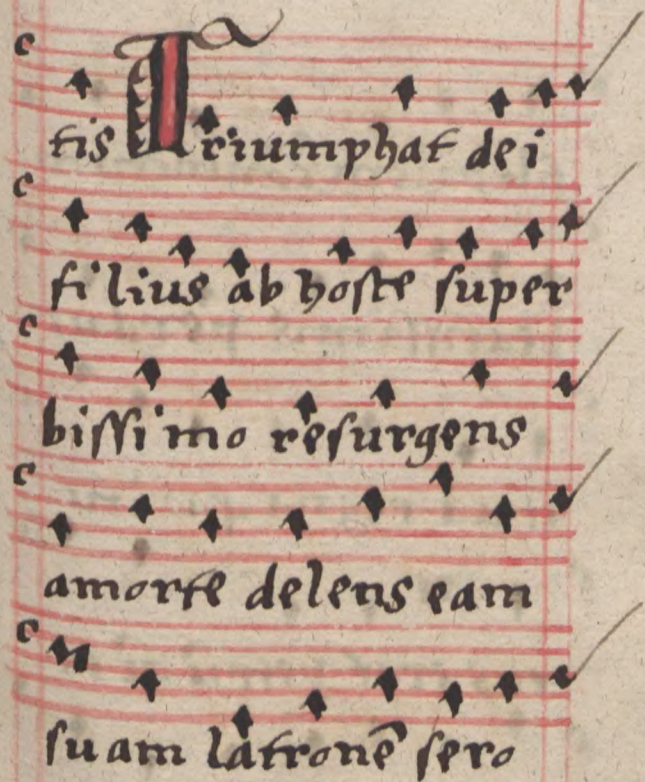 tis Triumphat dei
filius ab hoste super
bissimo resurgens
amorte delens eam
suam latronē sero